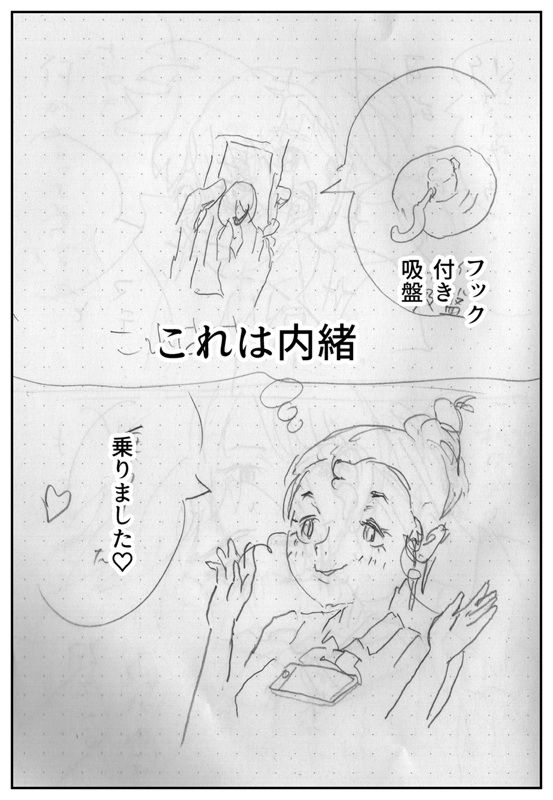 フック
付き
吸盤
これは内緒
乗りました♡